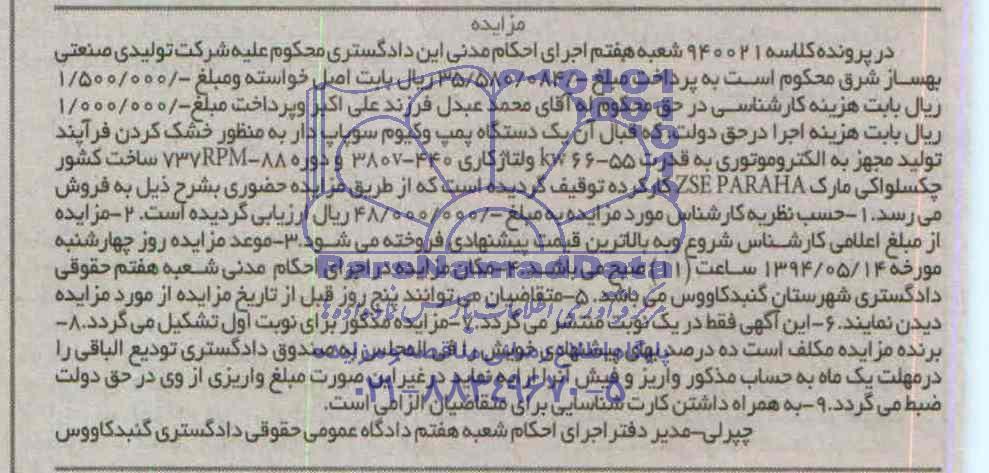 مزایده
در پرونده کلاسه ۹۴۰۰۲۱ شعبه هفتم اجرای احکام مدنی این دادگستری محکوم علیه شرکت تولیدی صنعتی
بهساز شرق محکوم است به پرداخت مبلغ -/۳۵/۵۸۰/۰۸۴ ریال بابت اصل خواسته ومبلغ -/۱/۵۰۰/۰۰۰
ریال بابت هزینه کارشناسی در حق محکوم له آقای محمد عبدل فرزند علی اکبر وپرداخت مبلغ-/۱/۰۰۰/۰۰۰
ریال بابت هزینه اجرا درحق دولت که قبال آن یک دستگاه پمپ وکیوم سوپاپ دار به منظور خشک کردن فرآیند
تولید مجهز به الکتروموتوری به قدرت ۵۵-۶۶ kw ولتاژکاری ۴۴۰-۳۸۰۷ و دوره ۸۸-۷۳۷RPM ساخت کشور
چکسلواکی مارک ZSE PARAHA کارکرده توقیف گردیده است که از طریق مزایده حضوری بشرح ذیل به فروش
می رسد. ۱-حسب نظریه کارشناس مورد مزایده به مبلغ -/۴۸/۰۰۰/۰۰۰ ریال ارزیابی گردیده است. ۲-مزایده
از مبلغ اعلامی کارشناس شروع وبه بالاترین قیمت پیشنهادی فروخته می شود.۳-موعد مزایده روز چهارشنبه
مورخه ۱۳۹۴/۰۵/۱۴ ساعت (۱۱) صبح می باشد.۴-مکان مزایده در اجرای احکام مدنی شعبه هفتم حقوقی
دادگستری شهرستان گنبدکاووس می باشد. ۵-متقاضیان می توانند پنج روز قبل از تاریخ مزایده از مورد مزایده
دیدن نمایند.۶-این آگهی فقط در یک نوبت منتشر می گردد.۷-مزایده مذکور برای نوبت اول تشکیل می گردد.۸-
برنده مزایده مکلف است ده درصد بهای پیشنهادی خویش را فی المجلس به صندوق دادگستری تودیع الباقی را
درمهلت یک ماه به حساب مذکور واریز و فیش آنرا ارایه نماید درغیر این صورت مبلغ واریزی از وی در حق دولت
ضبط می گردد.۹-به همراه داشتن کارت شناسایی برای متقاضیان الزامی است.
چپرلی-مدیر دفتر اجرای احکام شعبه هفتم دادگاه عمومی حقوقی دادگستری گنبدکاووس
ParsNamadData
۰۲۱-۸۸۳۴۹۶۷۰-۵